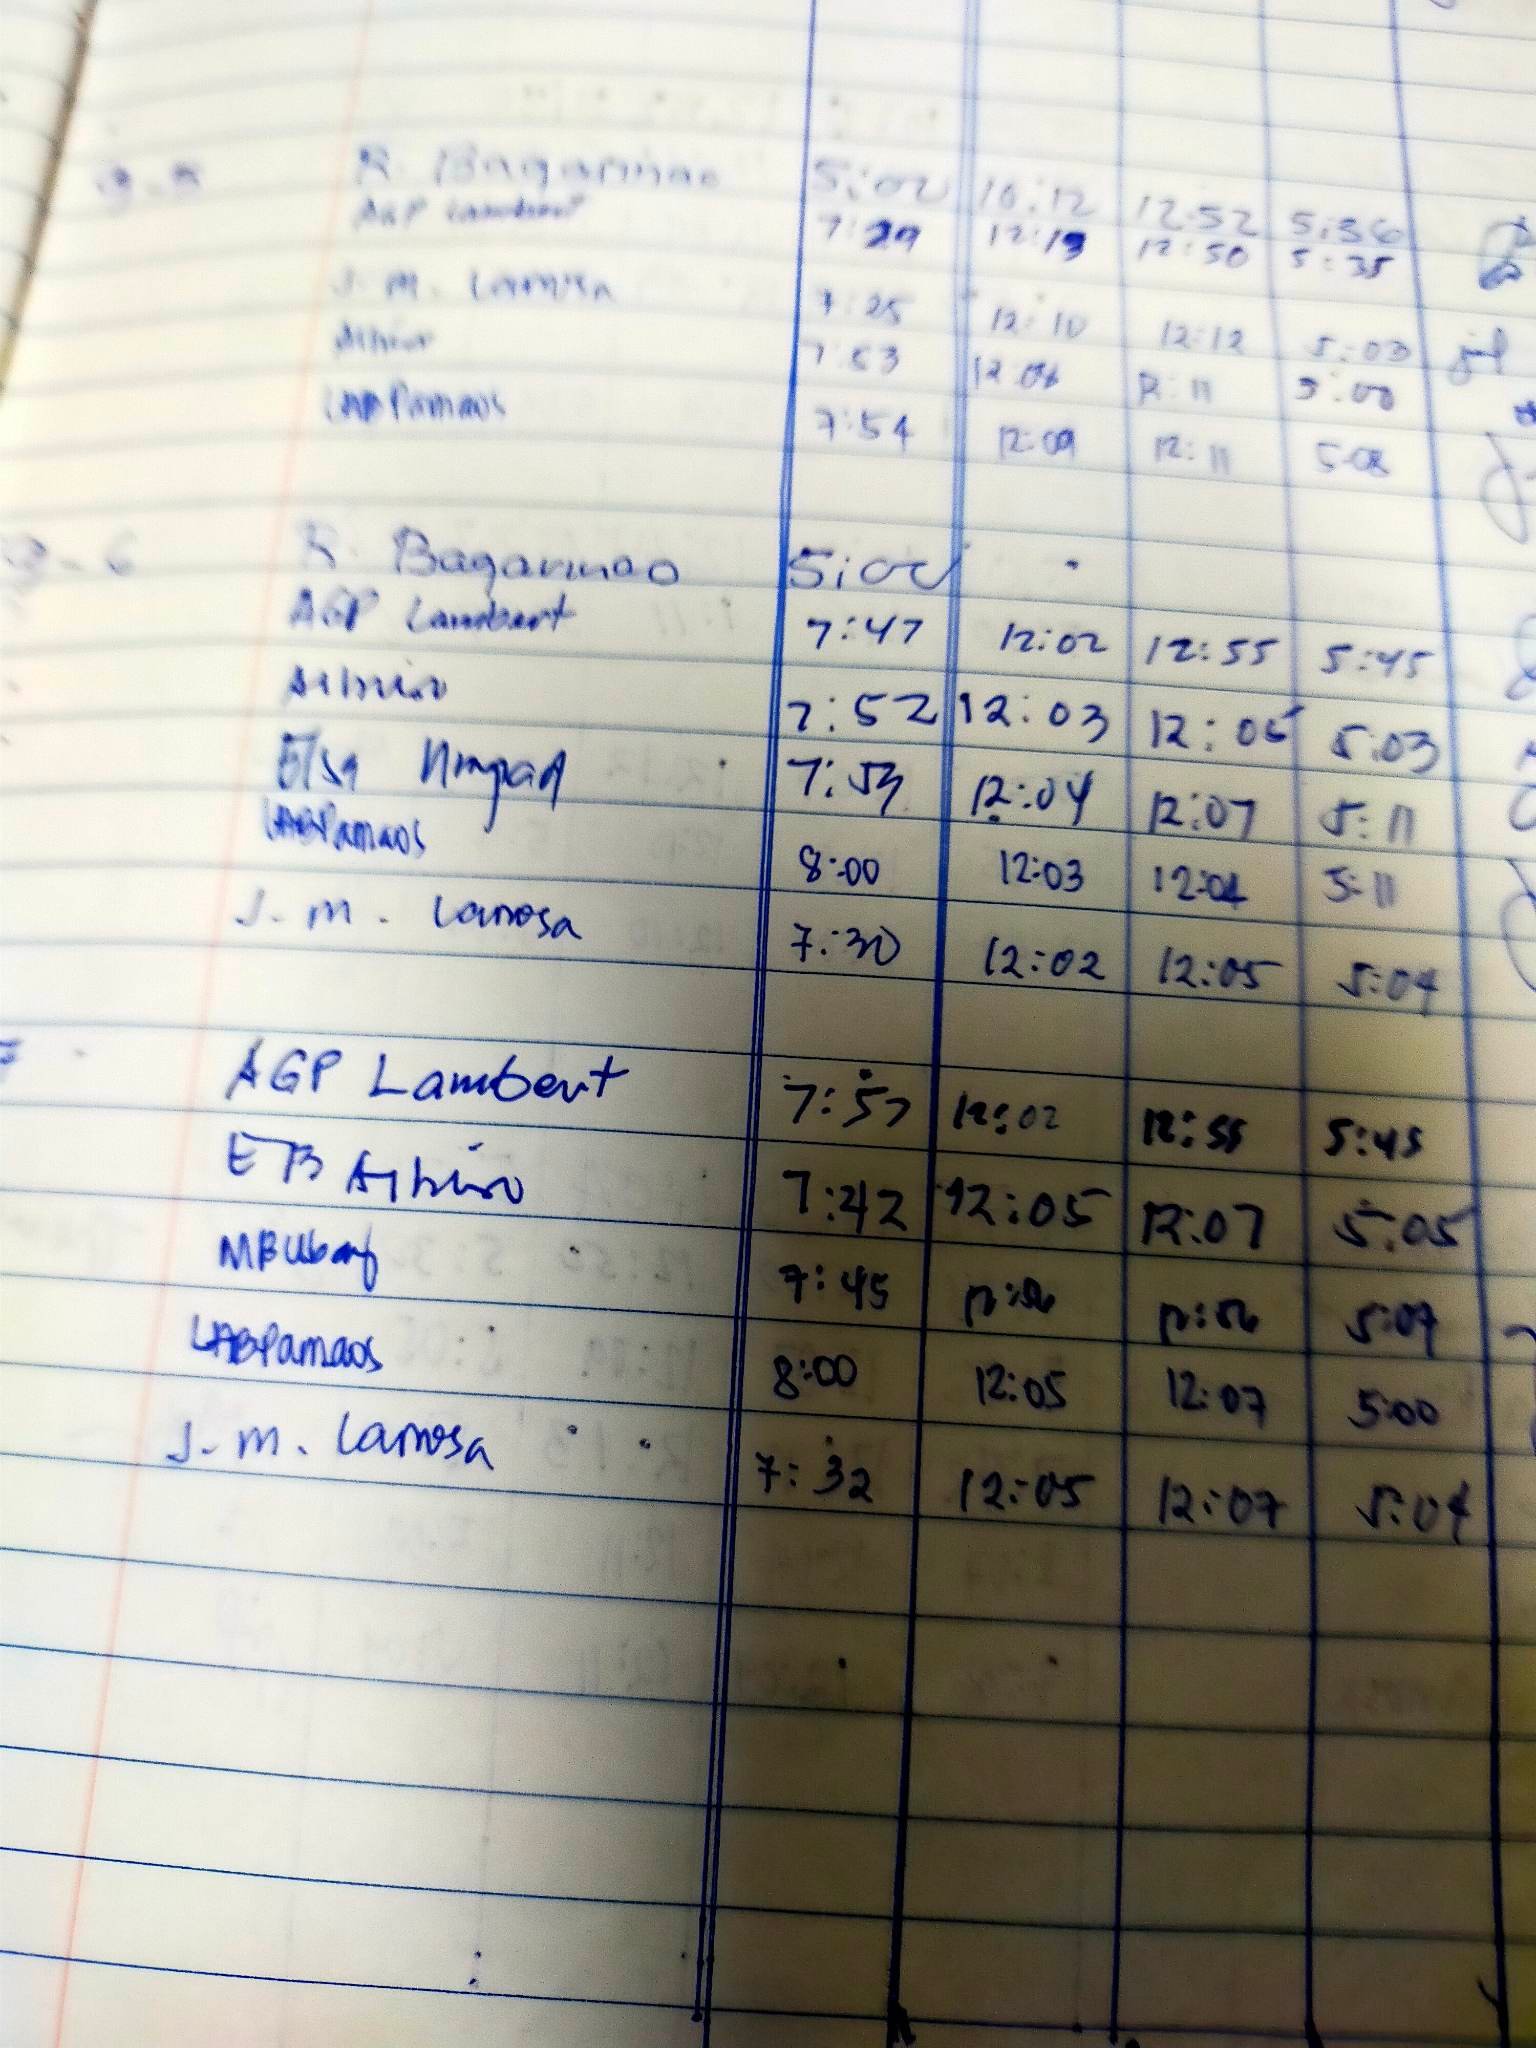 R. Bagarinao 5:02 12:52 5:36
AGP Lambert 7:29 12:13 12:50 5:35
J. M. Lanosa 7:25 12:10 12:12 5:03
7:53 12:11 5:00
LABPamaos 7:54 12:09 12:11 5:02
R. Bagarinao 5:00
AGP Lambert 7:47 12:02 12:55 5:45
7:52 12:03 12:05 5:03
Elsa 7:53 12:04 12:07 5:11
LABPamaos 8:00 12:03 12:04 5:11
J. M. Lanosa 7:30 12:02 12:05 5:04
AGP Lambert 7:57 12:02 12:55 5:45
ETB 7:42 12:05 12:07 5:05
7:45 5:07
LABPamaos 8:00 12:05 12:07 5:00
J. M. Lanosa 7:32 12:05 12:07 5:04